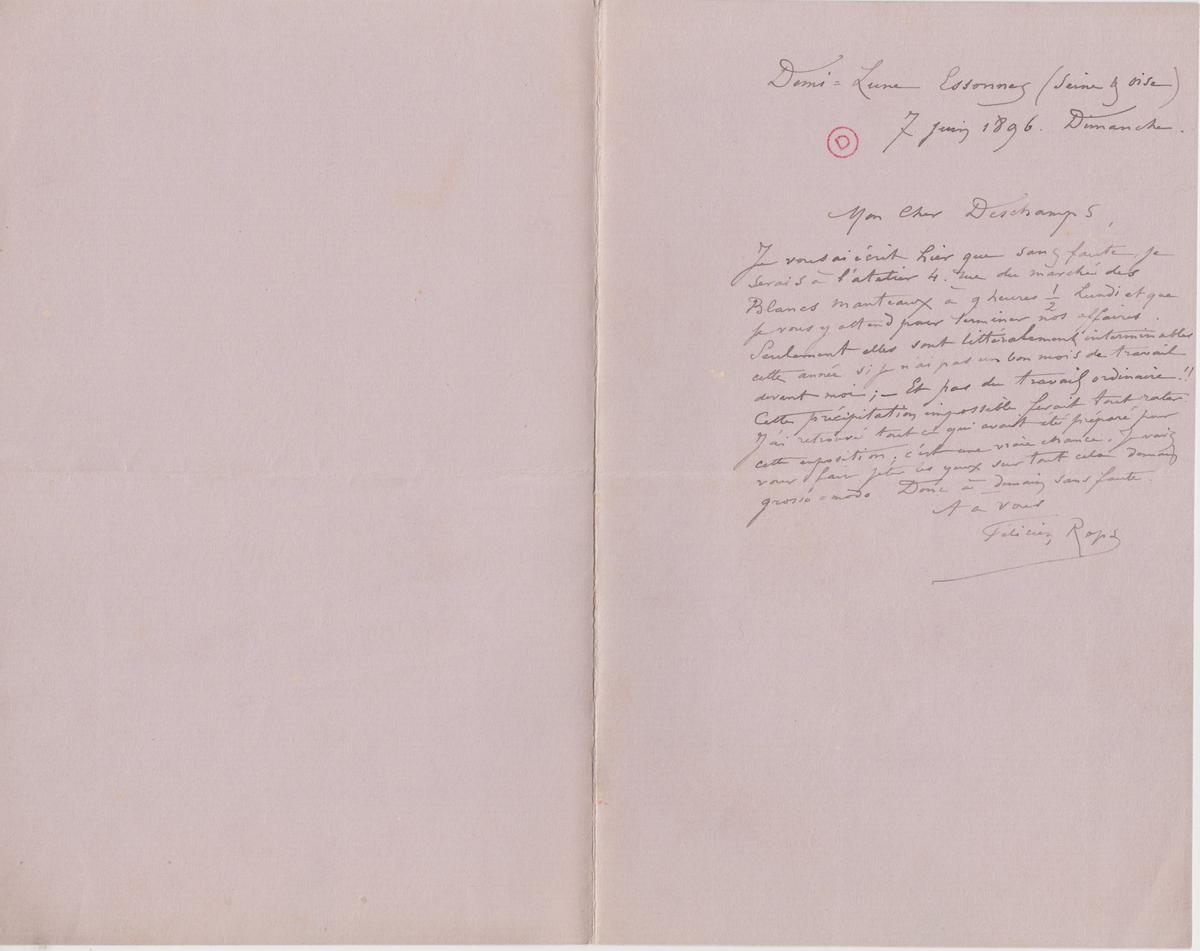 Demi=Lune Essonnes (Seine & Oise)
7 juin 1896. Dimanche.
D
Mon Cher Deschamps,
Je vous ai écrit hier que sans faute je
serais à l'atelier 4. rue du marché des
Blancs Manteaux à 9 heures 1/2 Lundi et que
je vous y attend pour terminer nos affaires.
Seulement elles sont littéralement interminables
cette année si je n'ai pas un bon mois de travail
devant moi; — Et pas du travail ordinaire!!
Cette précipitation impossible ferait tout rater
J'ai retrouvé tout ce qui avait été préparé pour
cette exposition; c'est une vraie chance. Je vais
vous fair jeter les yeux sur tout cela demain
grosso=modo Donc à demain sans faute.
A a vous
Félicien Rops